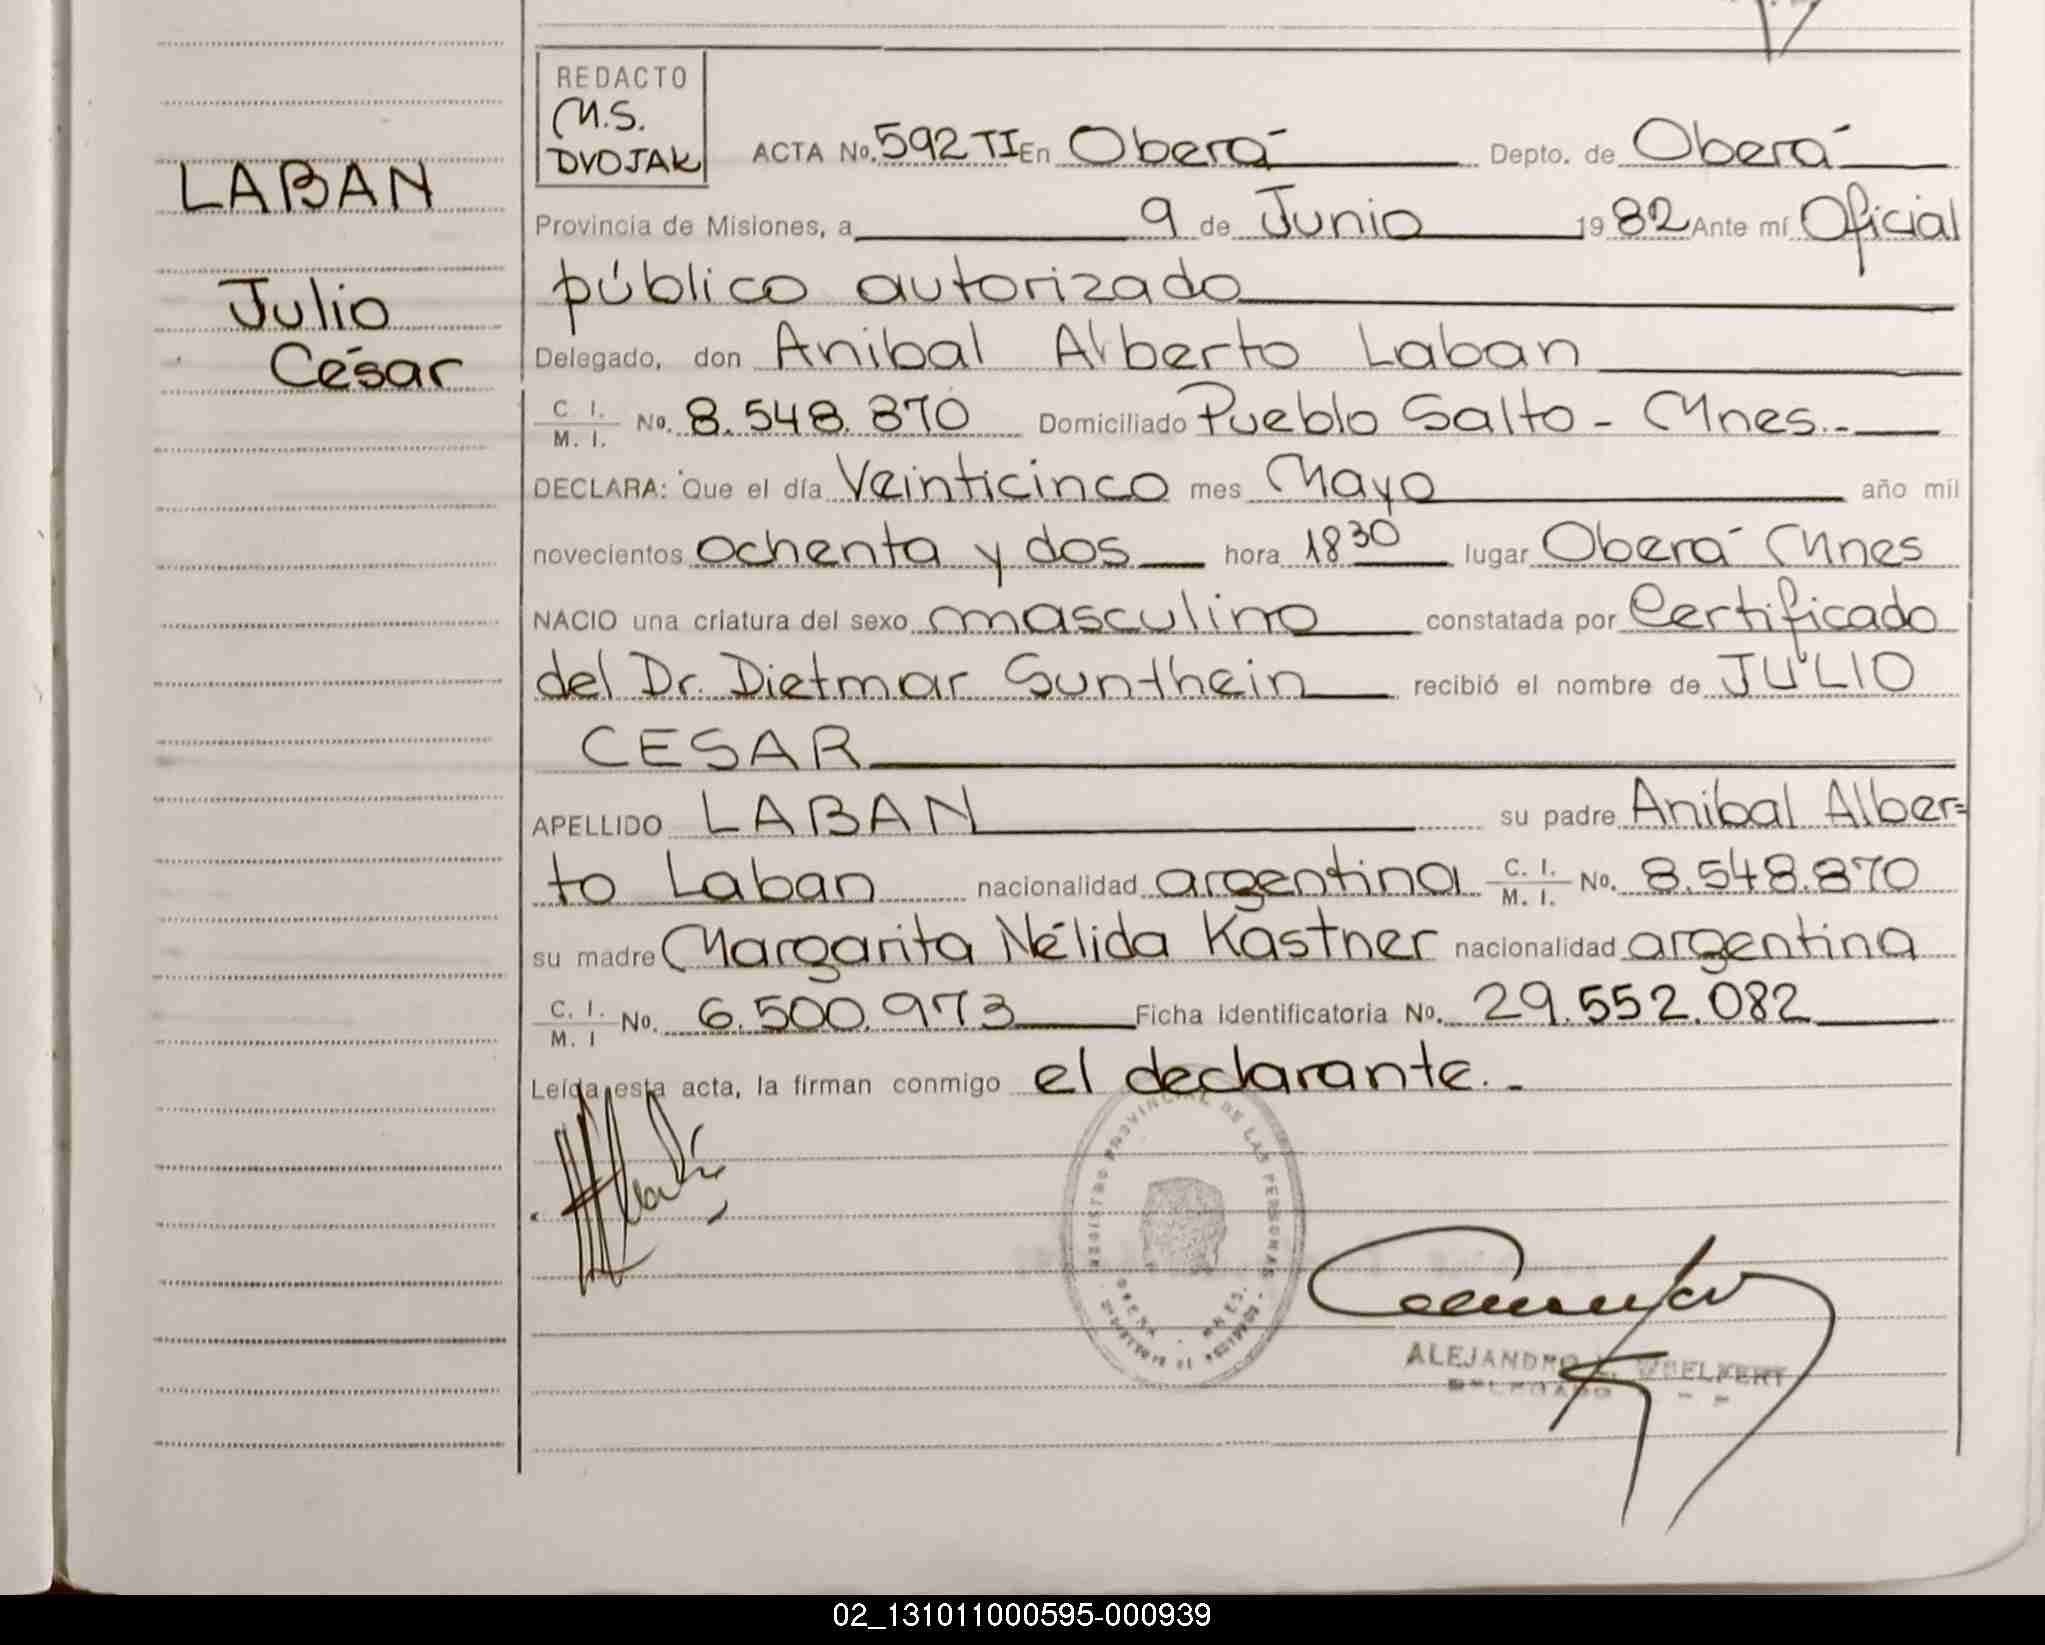 REDACTO
M.S.
DVOJAK
ACTA No. 592 TI En Oberá Depto. de Oberá
LABAN
Provincia de Misiones, a 9 de Junio 1982 Ante mí Oficial
Julio
público autorizado
César
Delegado, don Anibal Alberto Laban
C. I. / M. I. No. 8.548.870 Domiciliado Pueblo Salto - Mnes.-
DECLARA: Que el día Veinticinco mes Mayo año mil
novecientos ochenta y dos hora 18 30 lugar Oberá Mnes
NACIO una criatura del sexo masculino constatada por Certificado
del Dr. Dietmar Sunthein recibió el nombre de JULIO
CESAR
APELLIDO LABAN su padre Anibal Alber=
to Laban nacionalidad argentina C. I. / M. I. No. 8.548.870
su madre Margarita Nélida Kastner nacionalidad argentina
C. I. / M. I No. 6.500.973 Ficha identificatoria No. 29.552.082
Leída esta acta, la firman conmigo el declarante.-
REGISTRO PROVINCIAL DE LAS PERSONAS
ALEJANDRO
DELEGADO
02_131011000595-000939